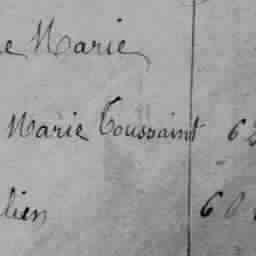 e Marie
Marie Toussaint 6
lien 60